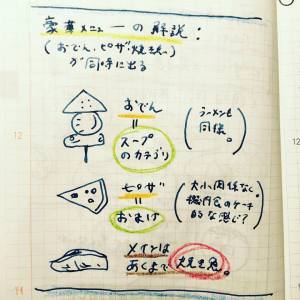 豪華メニューの解説：
（おでん、ピザ、焼き魚）
が同時に出る
おでん
||
スープ
のカテゴリ
（ラーメンも
同様。）
12
ピザ
||
おまけ
（大小関係なし。
機内食のケーキ
的な感じ？）
メインは
あくまで
焼き魚。